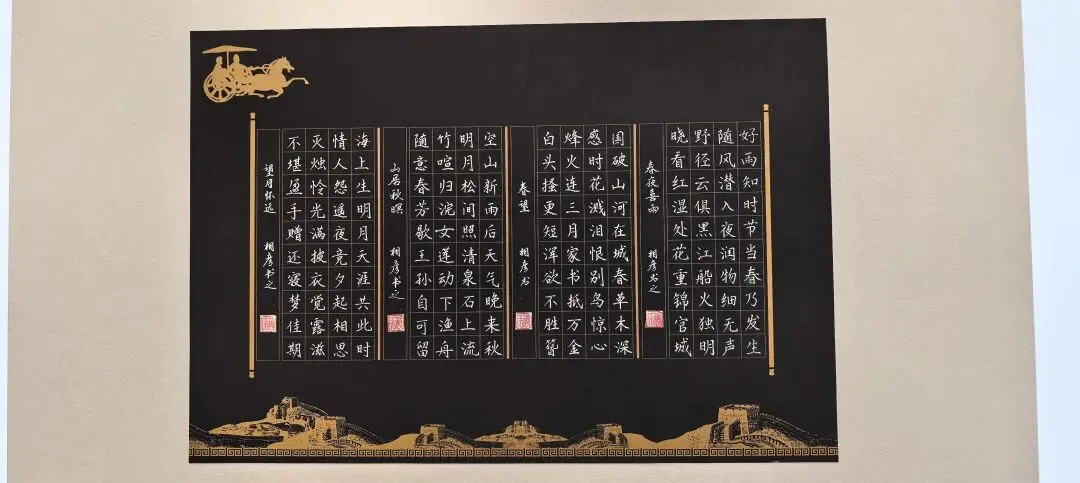 好雨知时节当春乃发生
随风潜入夜润物细无声
野径云俱黑江船火独明
晓看红湿处花重锦官城
春夜喜雨 相彦书之
国破山河在城春草木深
感时花溅泪恨别鸟惊心
烽火连三月家书抵万金
白头搔更短浑欲不胜簪
春望 相彦书
空山新雨后天气晚来秋
明月松间照清泉石上流
竹喧归浣女莲动下渔舟
随意春芳歇王孙自可留
山居秋暝 相彦书之
海上生明月天涯共此时
情人怨遥夜竟夕起相思
灭烛怜光满披衣觉露滋
不堪盈手赠还寝梦佳期
望月怀远 相彦书之